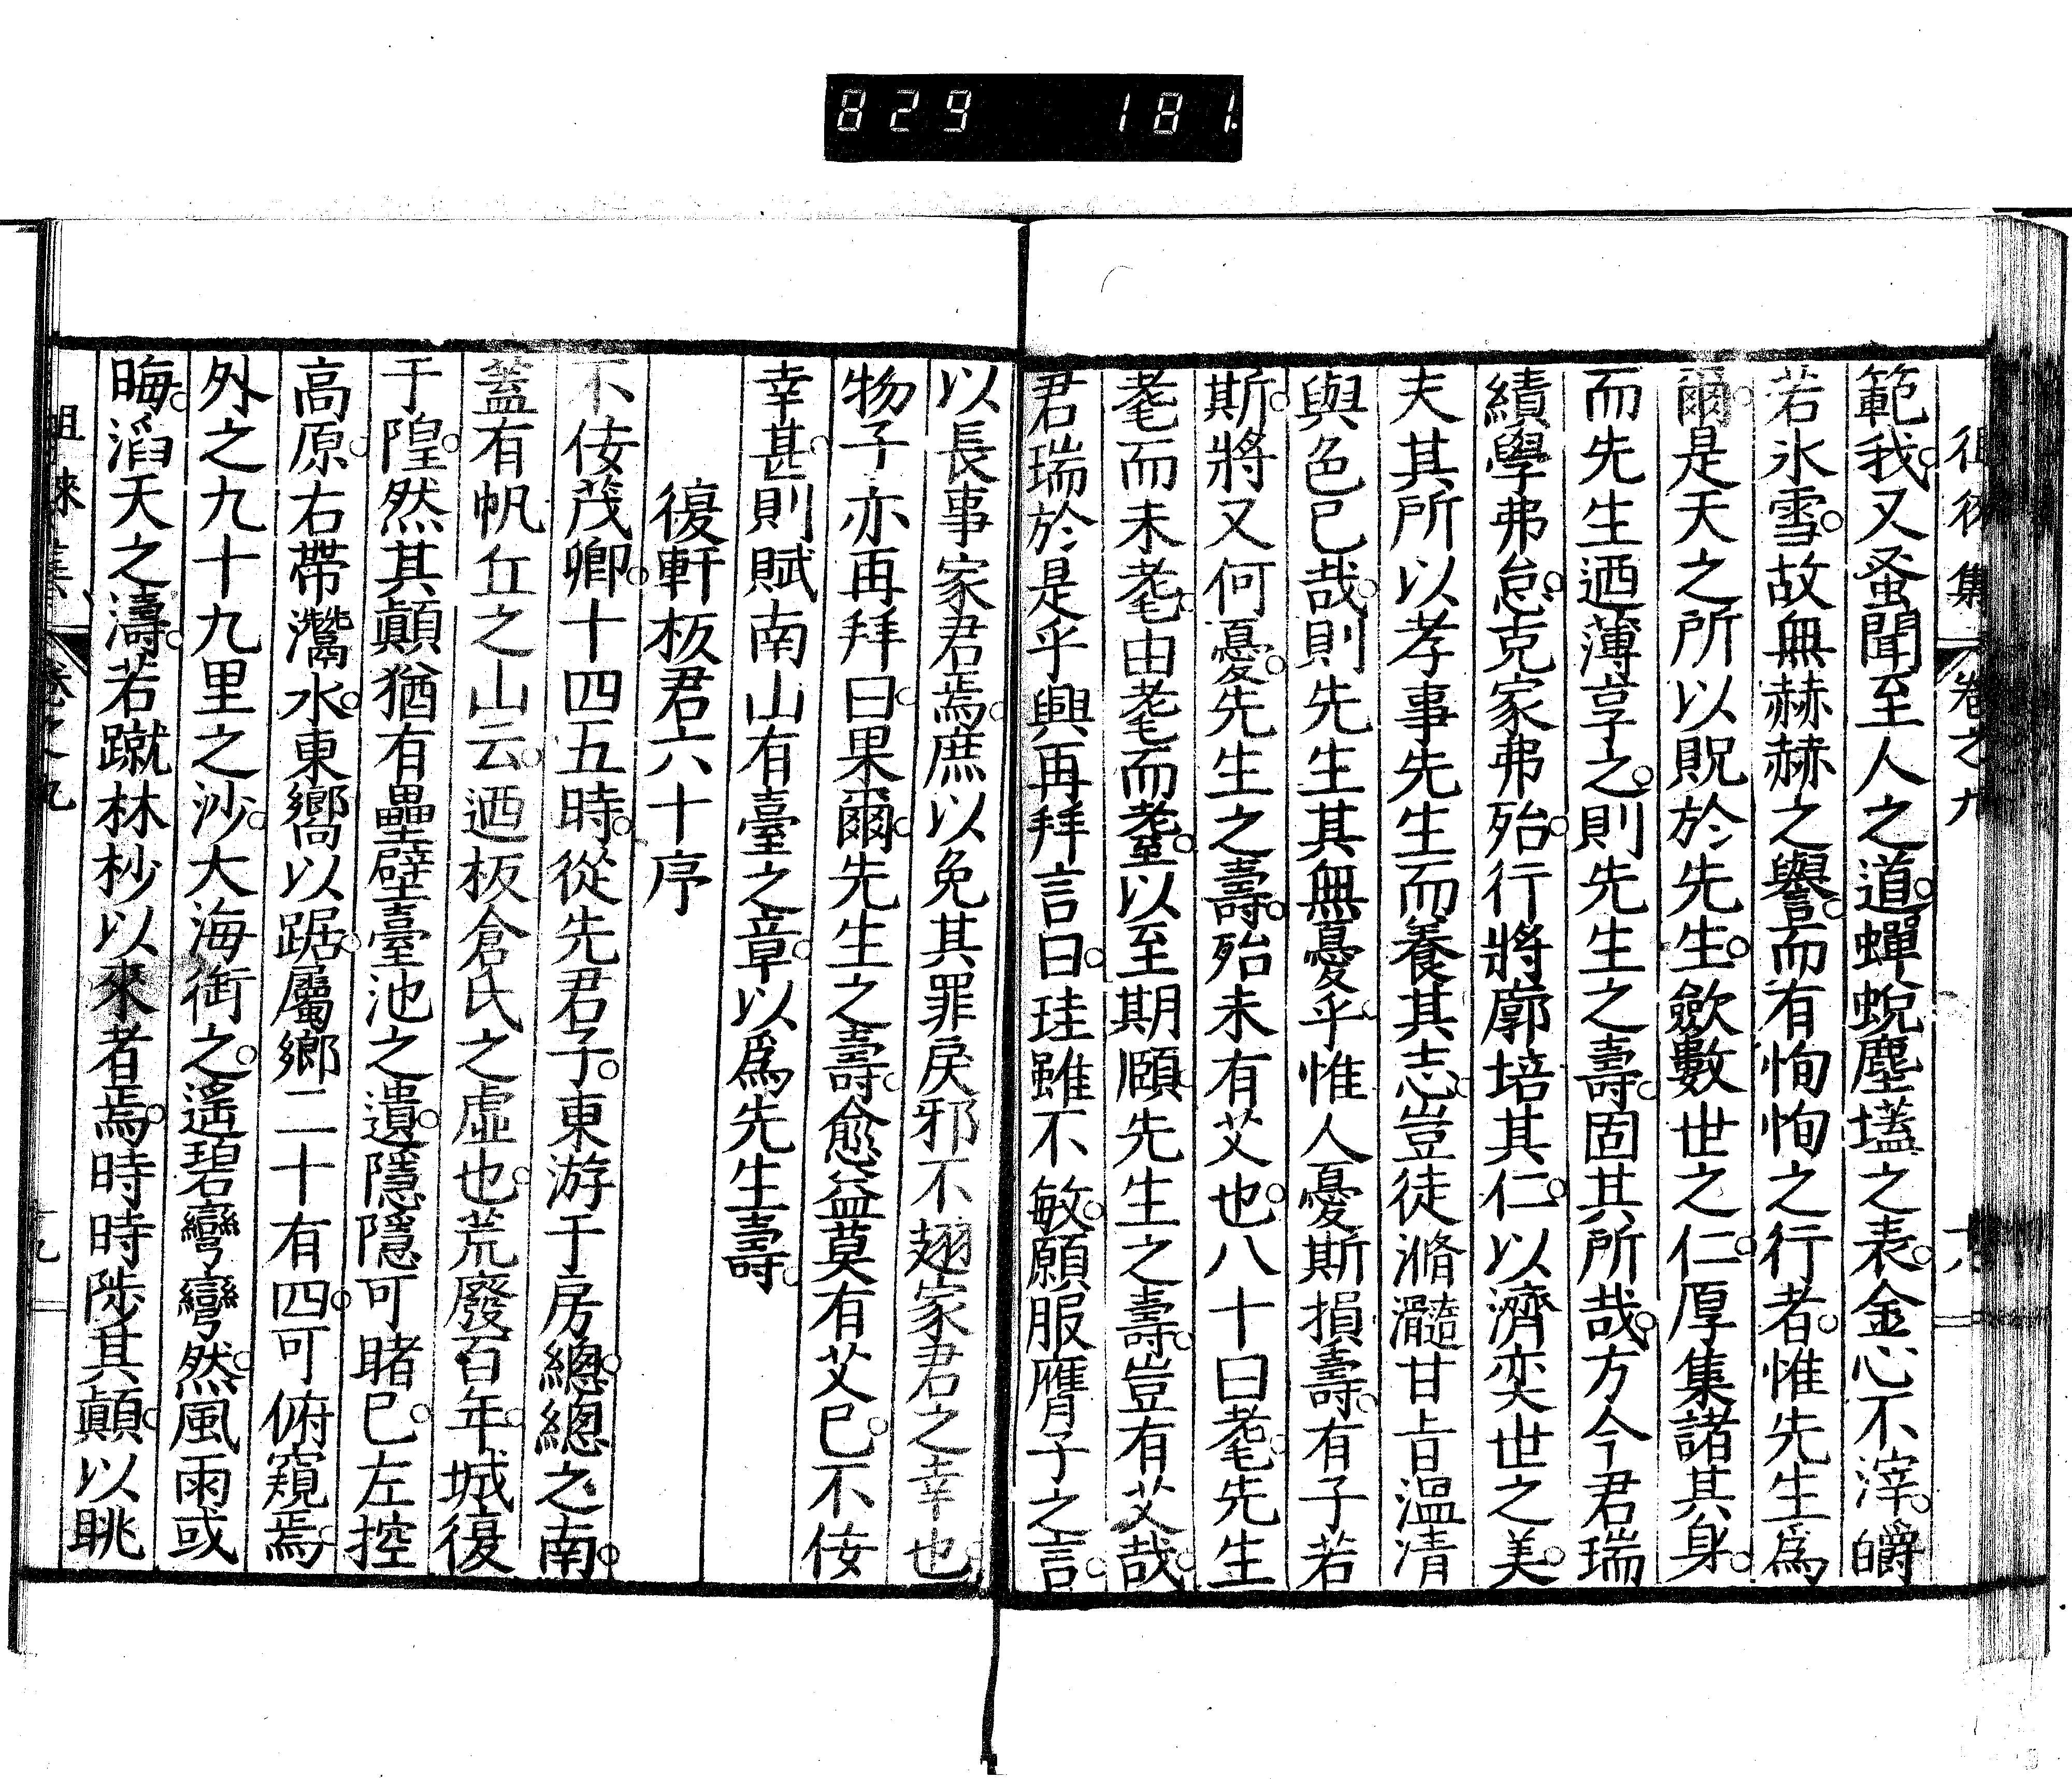 829 181.
徂徠集 卷之九 十八
範我。又蚤聞至人之道。蟬蛻塵壒之表。金心不滓。皭
若氷雪。故無赫赫之譽。而有恂恂之行者。惟先生爲
爾。是天之所以貺於先生。歛數世之仁。厚集諸其身。
而先生迺薄享之。則先生之壽。固其所哉。方今君瑞
績學弗怠。克家弗殆。行將廓培其仁。以濟奕世之美。
夫其所以孝事先生而養其志。豈徒滫瀡甘旨溫凊
與色已哉。則先生其無憂乎。惟人憂斯損壽。有子若
斯。將又何憂。先生之壽。殆未有艾也。八十曰耄。先生
耄而未耄。由耄而耋。以至期頤。先生之壽。豈有艾哉。
君瑞於是乎興再拜言曰。珪雖不敏。願服膺子之言。
以長事家君焉。庶以免其罪戾邪。不翅家君之幸也。
物子亦再拜曰。果爾。先生之壽。愈益莫有艾已。不佞
幸甚。則賦南山有臺之章。以爲先生壽。
復軒板君六十序
不佞茂卿。十四五時。從先君子。東游于房總。總之南。
蓋有帆丘之山云。迺板倉氏之虛也。荒廢百年。城復
于隍。然其顚猶有壘壁臺池之遺。隱隱可睹已。左控
高原。右帶灊水。東嚮以踞。屬鄉二十有四。可俯窺焉。
外之九十九里之沙。大海銜之。遙碧彎彎然。風雨或
晦。滔天之濤。若蹴林杪以來者焉。時時陟其顚。以眺
徂徠集 卷之九 十九